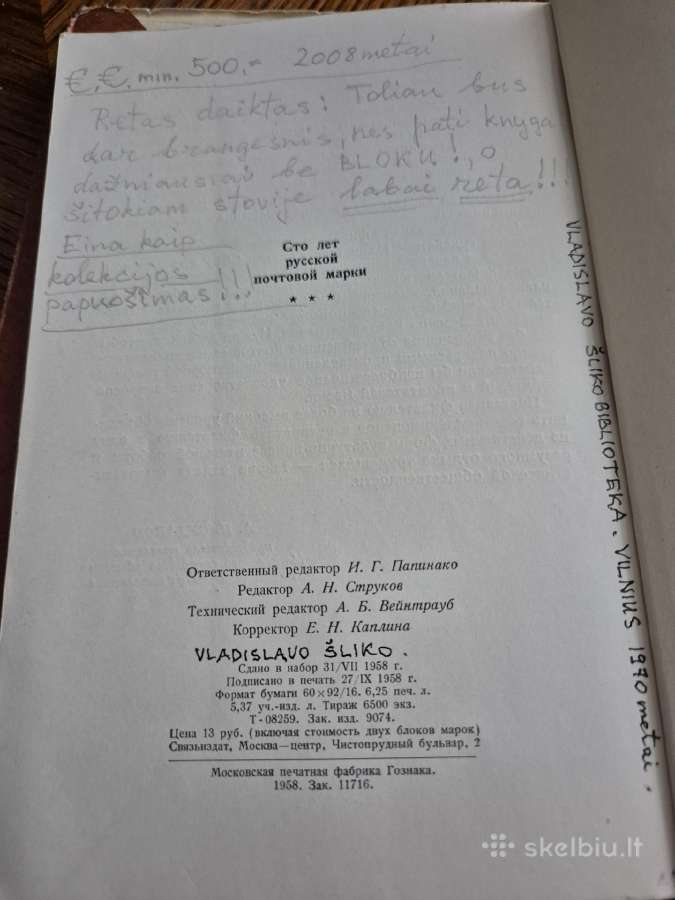 €,€, min. 500,- 2008 metai
Retas daiktas! Toliau bus
dar brangesnis, nes pati knyga
dažniausiai be BLOKŲ!, o
šitokiam stovije labai reta!!!
Eina kaip
kolekcijos
papuošimas!!!
Сто лет
русской
почтовой марки
* * *
VLADISLAVO ŠLIKO BIBLIOTEKA. VILNIUS 1970 metai.
Ответственный редактор И. Г. Папинако
Редактор А. Н. Струков
Технический редактор А. Б. Вейнтрауб
Корректор Е. Н. Каплина
VLADISLAVO ŠLIKO.
Сдано в набор 31/VII 1958 г.
Подписано в печать 27/IX 1958 г.
Формат бумаги 60×92/16. 6,25 печ. л.
5,37 уч.-изд. л. Тираж 6500 экз.
Т-08259. Зак. изд. 9074.
Цена 13 руб. (включая стоимость двух блоков марок)
Связьиздат, Москва—центр, Чистопрудный бульвар, 2
Московская печатная фабрика Гознака.
1958. Зак. 11716.
skelbiu.lt